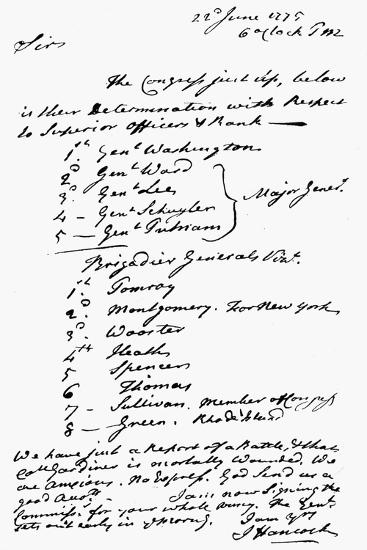 22d June 1775
6 oClock P M
Sirs
The Congress just up, below
is their Determination with Respect
to Superior Officers & Rank —
1st Genl Washington
2d Genl Ward
3d Genl Lee
4 — Genl Schuyler
5 — Genl Putnam
Major Generls
Brigadier Generals Vizt.
1st Pomroy
2d Montgomery. For New York
3d Wooster
4th Heath
5 Spencer
6 Thomas
7 — Sullivan. Member of Congress
8 — Green. Rhode Island
We have just a Report of a Battle, & that
Coll Gardiner is mortally Wounded. We
are Anxious. No Express. God Send us a
good Acct. I am now Signing the
Commissns for your whole Army. The Genl
sets out early in ye Morng. I am Yrs
J Hancock